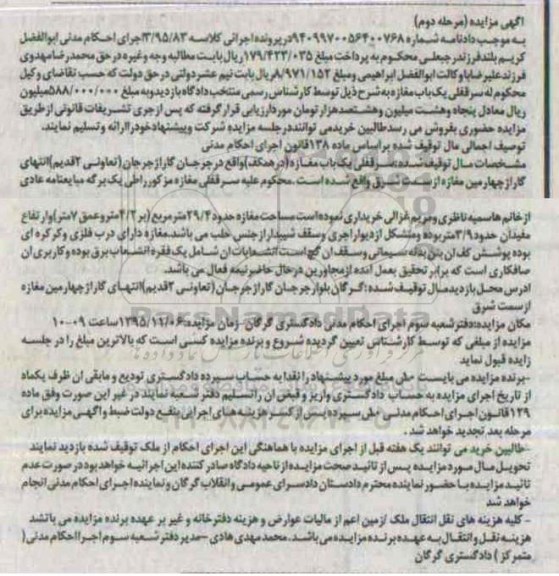 آگهی مزایده (مرحله دوم)
به موجب دادنامه شماره ۹۴۰۹۹۷۰۰۵۶۴۰۰۷۶۸ در پرونده اجرایی کلاسه ۳/۹۵/۸۳ اجرای احکام مدنی ابوالفضل
کریم بلند فرزند رجبعلی محکوم به پرداخت مبلغ ۱۷۹/۴۲۳/۰۳۵ ریال بابت مطالبه وجه و غیره در حق محمدرضا مهدوی
فرزند علیرضا با وکالت ابوالفضل ابراهیمی و مبلغ ۸/۹۷۱/۱۵۲ ریال بابت نیم عشر دولتی در حق دولت که حسب تقاضای وکیل
محکوم له سرقفلی یک باب مغازه به شرح ذیل توسط کارشناس رسمی منتخب دادگاه بازدید و به مبلغ ۵۸۸/۰۰۰/۰۰۰ میلیون
ریال معادل پنجاه و هشت میلیون و هشتصد هزار تومان مورد ارزیابی قرار گرفته که پس از جری تشریفات قانونی از طریق
مزایده حضوری بفروش می رسد طالبین خرید می توانند در جلسه مزایده شرکت و پیشنهاد خود را ارائه و تسلیم نمایند.
توصیف اجمالی مال توقیف شده بر اساس ماده ۱۳۸ قانون اجرای احکام مدنی
مشخصات مال توقیف شده: سرقفلی یک باب مغازه (در همکف) واقع در جرجان گاراژ جرجان (تعاونی ۲ قدیم) انتهای
گاراژ چهارمین مغازه از سمت شرق واقع شده است. محکوم علیه سرقفلی مغازه مزکور را طی یک برگه مبایعنامه عادی
از خانم ها سمیه ناظری و مریم غزالی خریداری نموده است مساحت مغازه حدود ۲۹/۴ متر مربع (بر ۴/۲ متر و عمق ۷ متر) و ارتفاع
مفیدان حدود ۳/۹ متر بوده و متشکل از دیوار اجری و سقف شیبدار از جنس حلب می باشد. مغازه دارای درب فلزی و کرکره ای
بوده پوشش کف ان بتن بدنه سیمانی و سقف ان گچ است انشعابات ان شامل یک فقره انشعاب برق بوده و کاربری ان
صافکاری است که برابر تحقیق بعمل آمده از مجاورین در حال حاضر نیمه فعال می باشد.
ادرس محل بازدید مال توقیف شده: گرگان بلوار جرجان گاراژ جرجان (تعاونی ۲ قدیم) انتهای گاراژ چهارمین مغازه
از سمت شرق
مکان مزایده: دفتر شعبه سوم اجرای احکام مدنی دادگستری گرگان -زمان مزایده: ۱۳۹۵/۱۲/۰۶ ساعت ۰۹-۱۰
مزایده از مبلغی که توسط کارشناس تعیین گردیده شروع و برنده مزایده کسی است که بالاترین مبلغ را در جلسه
زایده قبول نماید
-برنده مزایده می بایست ۱۰٪ مبلغ مورد پیشنهاد را نقدا به حساب سپرده دادگستری تودیع و مابقی ان ظرف یکماه
از تاریخ اجرای مزایده به حساب دادگستری واریز و قبض ان را تسلیم دفتر شعبه نمایند در غیر این صورت وفق ماده
۱۲۹ قانون اجرای احکام مدنی ۱۰٪ سپرده پس از کسر هزینه های اجرایی بنفع دولت ضبط و اگهی مزایده برای
مرحله بعد تجدید خواهد شد.
-طالبین خرید می توانند یک هفته قبل از اجرای مزایده با هماهنگی این اجرای احکام از ملک توقیف شده بازدید نمایند
تحویل مال مورد مزایده پس از تائید صحت مزایده از ناحیه دادگاه صادر کننده این اجرائیه خواهد بود در صورت عدم
تائید مزایده با حضور نماینده محترم دادستان دادسرای عمومی و انقلاب گرگان و نماینده اجرای احکام مدنی انجام
خواهد شد
- کلیه هزینه های نقل انتقال ملک /زمین اعم از مالیات عوارض و هزینه دفترخانه و غیر بر عهده برنده مزایده می باشد
هزینه نقل و انتقال به عهده برنده مزایده می باشد. محمد مهدی هادی -مدیر دفتر شعبه سوم اجرا احکام مدنی (
متمرکز) دادگستری گرگان
ParsNamadData